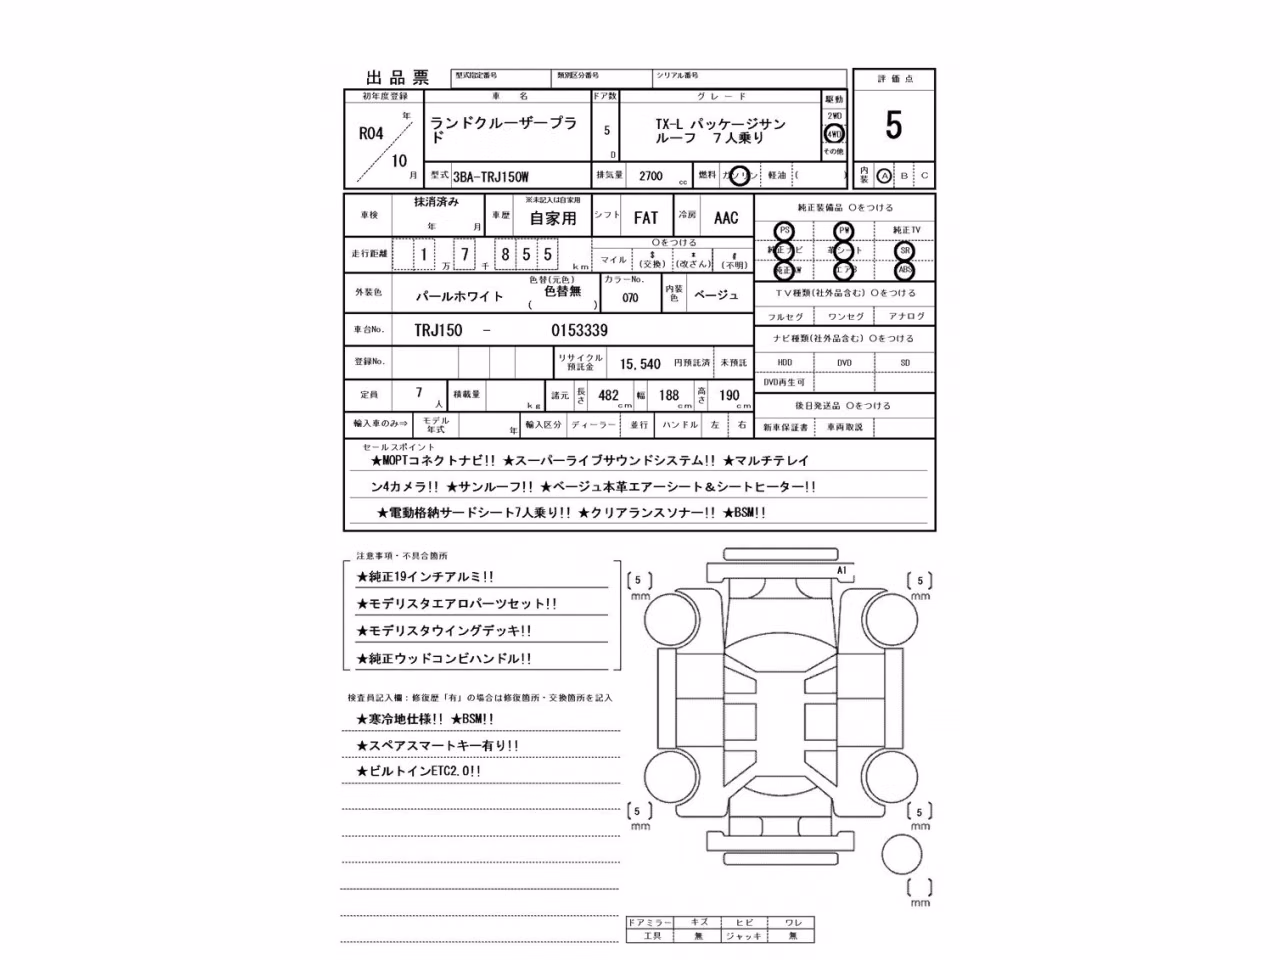 出品票 型式指定番号 類別区分番号 シリアル番号 評価点
初年度登録 車名 ドア数 グレード 駆動
R04 年 10 月
ランドクルーザープラ
ド
5 D
TX-L パッケージサン
ルーフ 7人乗り
2WD
4WD
その他
5
型式 3BA-TRJ150W 排気量 2700 cc 燃料 ガソリン 軽油 ( ) 内装 A B C
車検 抹消済み 年 月 車歴 ※未記入は自家用 自家用 シフト FAT 冷房 AAC
純正装備品 〇をつける
PS PW 純正TV
純正ナビ 革シート SR
純正AW エアB ABS
走行距離 1 万 7 千 8 5 5 km
〇をつける
マイル $ (交換) * (改ざん) # (不明)
外装色 パールホワイト 色替(元色) 色替無 ( ) カラーNo. 070 内装色 ベージュ
TV種類(社外品含む) 〇をつける
フルセグ ワンセグ アナログ
車台No. TRJ150 - 0153339
ナビ種類(社外品含む) 〇をつける
登録No. リサイクル預託金 15,540 円預託済 未預託
HDD DVD SD
DVD再生可
定員 7 人 積載量 kg 諸元 長さ 482 cm 幅 188 cm 高さ 190 cm
後日発送品 〇をつける
輸入車のみ⇒ モデル年式 年 輸入区分 ディーラー 並行 ハンドル 左 右
新車保証書 車両取説
セールスポイント
★MOPTコネクトナビ!! ★スーパーライブサウンドシステム!! ★マルチテレイ
ン4カメラ!! ★サンルーフ!! ★ベージュ本革エアーシート＆シートヒーター!!
★電動格納サードシート7人乗り!! ★クリアランスソナー!! ★BSM!!
注意事項・不具合箇所
★純正19インチアルミ!!
★モデリスタエアロパーツセット!!
★モデリスタウイングデッキ!!
★純正ウッドコンビハンドル!!
検査員記入欄：修復歴「有」の場合は修復箇所・交換箇所を記入
★寒冷地仕様!! ★BSM!!
★スペアスマートキー有り!!
★ビルトインETC2.0!!
A1
[5] mm
[5] mm
[5] mm
[5] mm
[ ] mm
ドアミラー キズ ヒビ ワレ
工具 無 ジャッキ 無